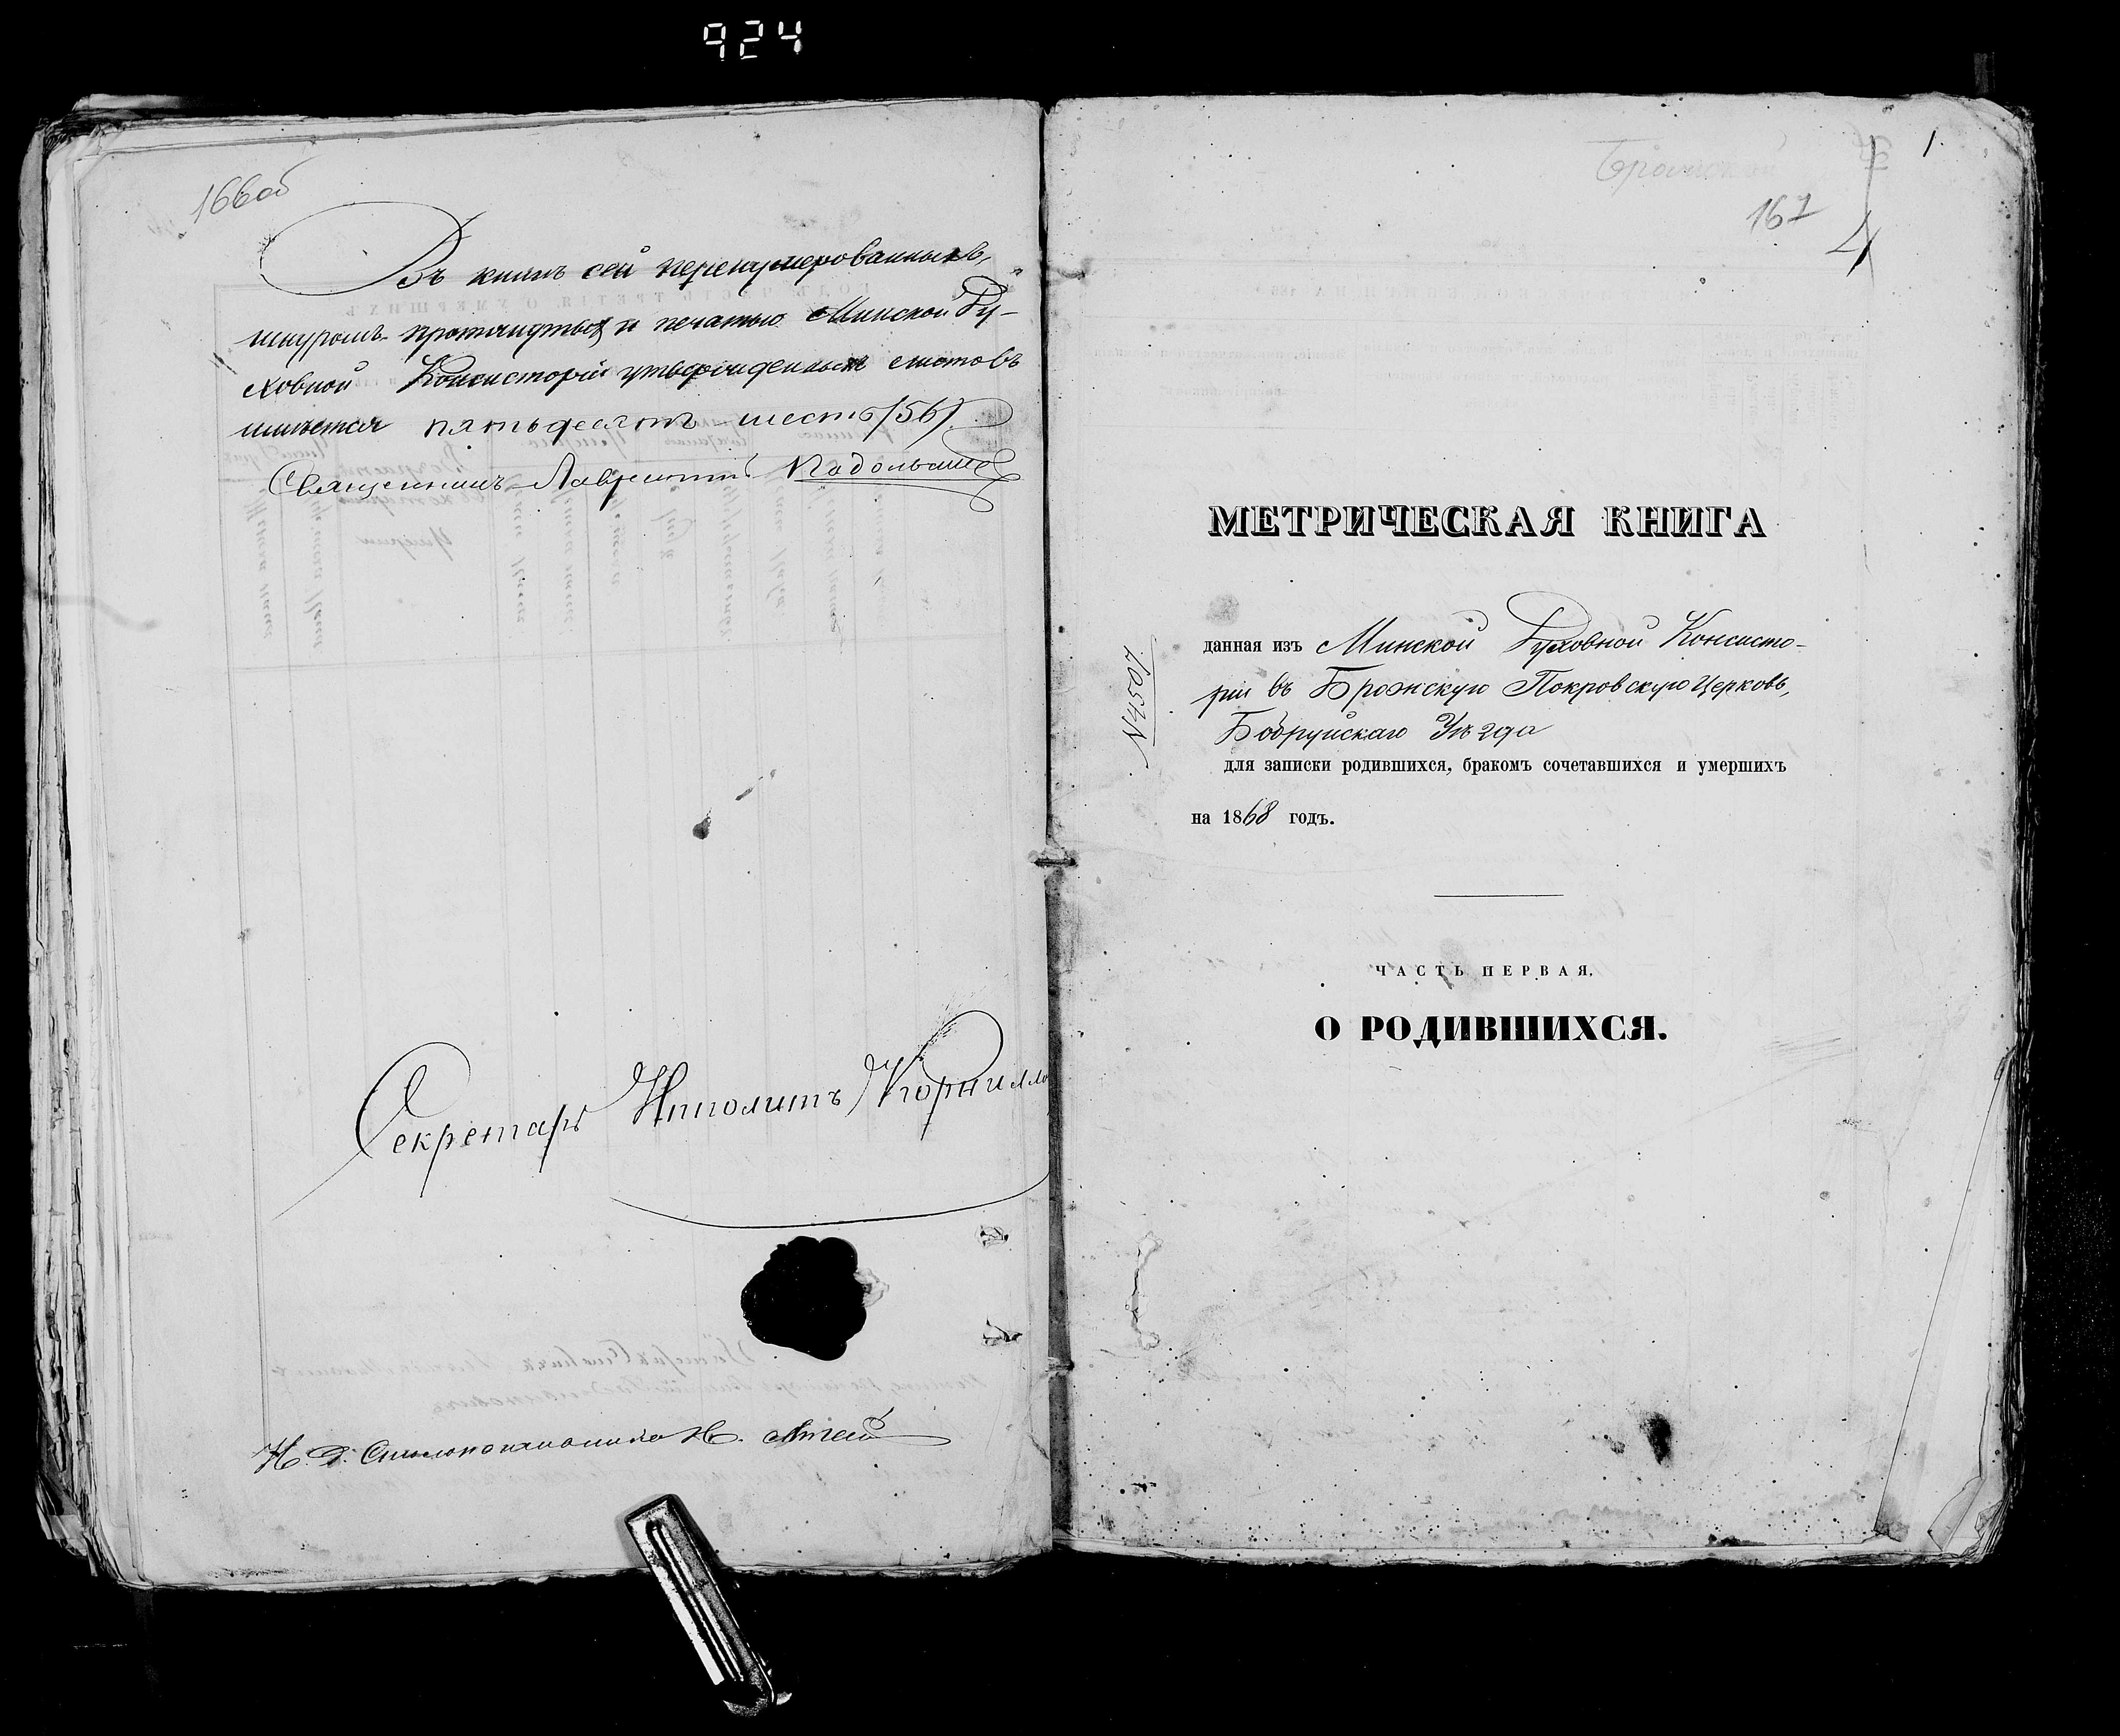 924
166 об
Въ книгѣ сей перенумерованныхъ,
шнуромъ протянутыхъ и печатью Минской Ду-
ховной Консисторіи утвержденныхъ листовъ
имѣется пятьдесятъ шесть /56/
Священникъ Лаврентій
Секретарь Ипполитъ Корнилло
И. д. Столоначальника
1.
167
4
МЕТРИЧЕСКАЯ КНИГА
№4507
данная изъ Минской Духовной Консисто-
ріи въ Брожскую Покровскую Церковь,
Бобруйскаго Уѣзда
для записки родившихся, бракомъ сочетавшихся и умершихъ
на 1868 годъ.
ЧАСТЬ ПЕРВАЯ.
О РОДИВШИХСЯ.